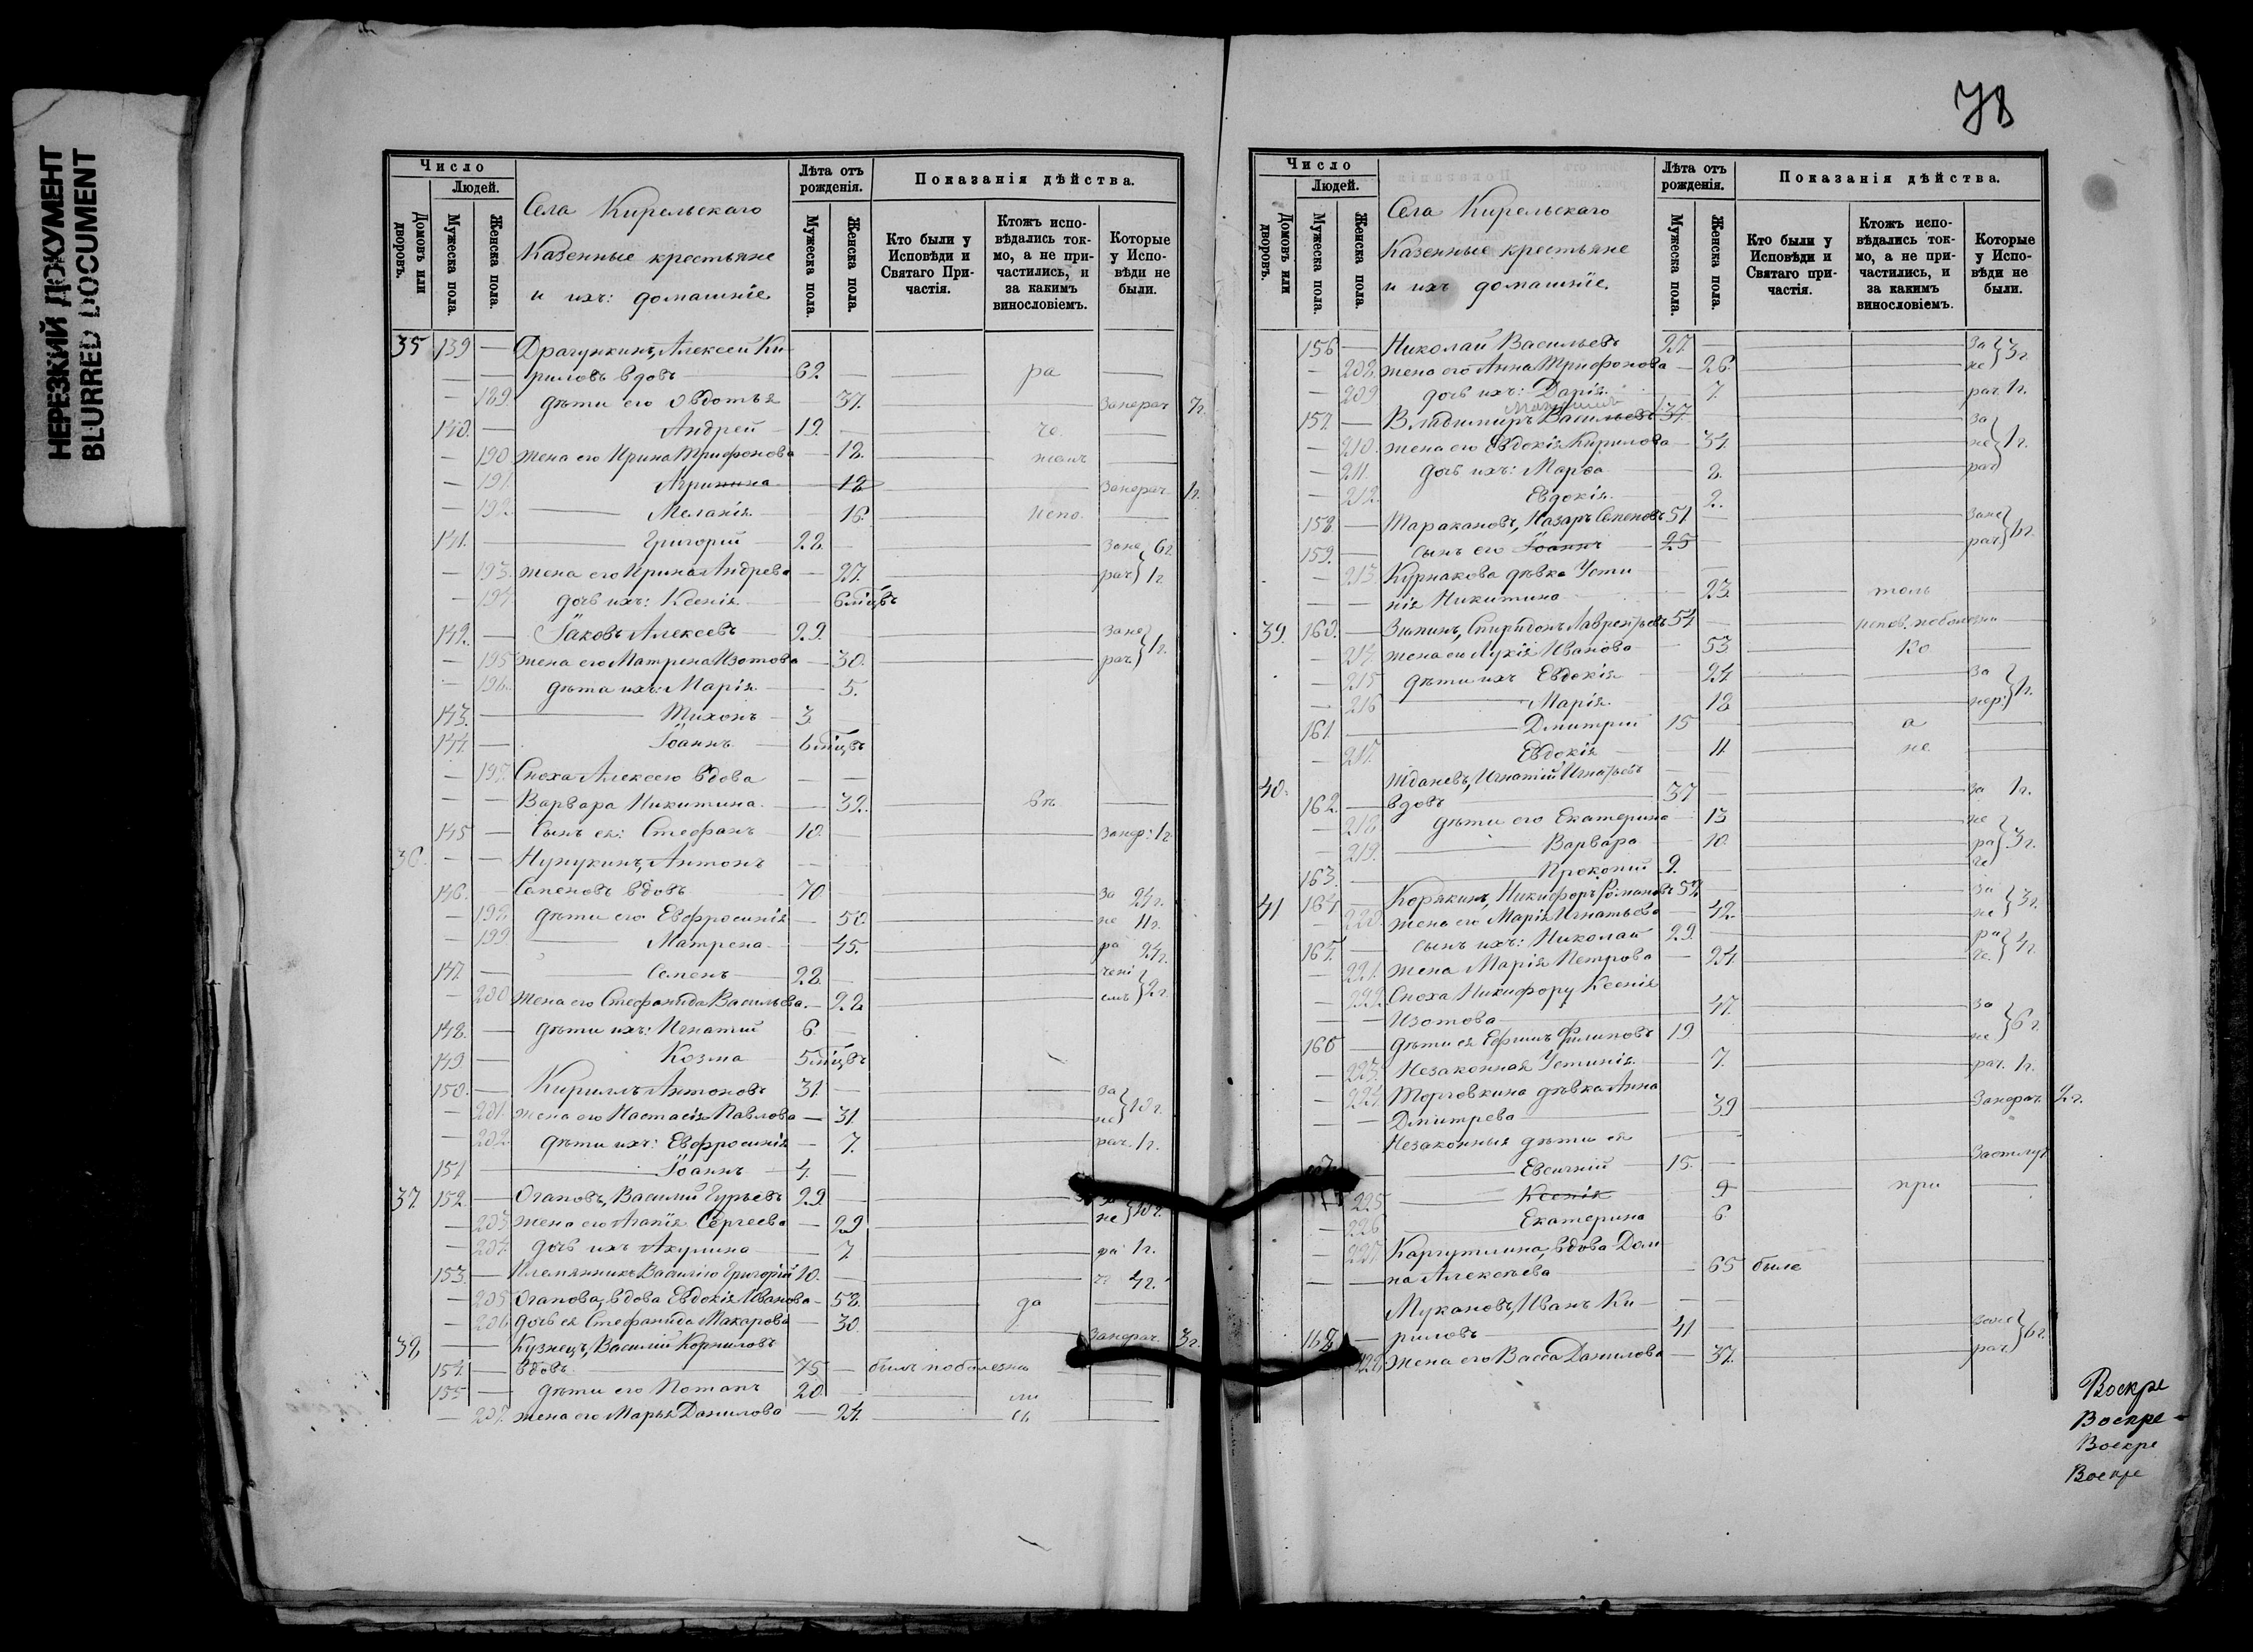 НЕРЕЗКИЙ ДОКУМЕНТ
BLURRED DOCUMENT
Число
Людей.
Домовъ или дворовъ.
Мужеска пола.
Женска пола.
Села Кирельскаго
Казенные крестьяне
и ихъ: домашніе
Лѣта отъ рожденія.
Мужеска пола.
Женска пола.
Показанія дѣйства.
Кто были у Исповѣди и Святаго Причастія.
Ктожъ исповѣдались токмо, а не причастились, и за какимъ винословіемъ.
Которые у Исповѣди не были.
35 139 — Драгункинъ, Алексей Ки-
— — риловъ вдовъ 62 ра
— 189 дѣти его Овдотья 37. Занерач 7г.
140. — Андрей 19. че
— 190 жена его Ирина Трифонова — 18.
— 191. 18 Занерач 1г.
— 192 Меланія 16. испо.
141. — Григорій 22. Зане 6г.
— 193. жена его Ирина Андрева — 27. рач 1г
— 194 дочь ихъ: Ксенія 6 мцвъ
142. — Іаковъ Алексевъ 29. Зане
— 195 жена его Матрена Изотова — 30. рач 1г.
— 196. дѣти ихъ: Марія 5.
143. — Тихонъ 3
144. — Іоаннъ 6 мцвъ
— 197. Сноха Алексею вдова
— — Варвара Никитина — 32. вѣ
145 — Сынъ ея: Стефанъ 10. Занер: 1г
36. — — Нунукинъ, Антонъ
146. — Семеновъ вдовъ 70 за 24г.
— 198. дѣти его Евфросинія — 50. не 11г.
— 199 Матрена 45. ра 24г.
147. — Семенъ 28. чені
— 200 жена его Стефанида Васильева — 28 емъ 2г.
148. — дѣти ихъ: Игнатій 6.
149 — Козма 5 мцвъ
150. — Кириллъ Антоновъ 31. за
— 201. жена его Настасія Павлова — 31. не 10г.
— 202. дѣти ихъ: Евфросинія — 7. рач. 1г.
151 — Іоаннъ 4.
37. 152. — Огаповъ, Василій Гурьевъ 29 за
— 203 жена его Агапія Сергеева — 29 не 10г.
— 204. дочь ихъ Акулина 7. ра 1г.
153. — Племянникъ Василію Григорій 10. че 4г.
— 205 Огапова, вдова Евдокія Иванова — 58. да
— 206 дочь ея Стефанида Макарова — 30. Занерач. 3г.
38, — Кузнецъ, Василій Корниловъ
154. — вдовъ 75 — былъ по болезни
155 — дѣти его Потапъ 20. ли
— 207. жена его Марья Данилова — 24. сь
78
Число
Людей.
Домовъ или дворовъ.
Мужеска пола.
Женска пола.
Села Кирельскаго
Казенные крестьяне
и ихъ домашніе.
Лѣта отъ рожденія.
Мужеска пола.
Женска пола.
Показанія дѣйства.
Кто были у Исповѣди и Святаго причастія.
Ктожъ исповѣдались токмо, а не причастились, и за какимъ винословіемъ.
Которые у Исповѣди не были.
156 — Николай Васильевъ 27. за
— 208. жена его Анна Трифонова — 26. не 3г.
— 209 дочь ихъ: Дарія 7. рач. 1г.
157. — Владимиръ Васильевъ 37. за
— 210. жена его Евдокія Кирилова — 34. не 1г.
— 211. дочь ихъ: Марѳа 8. рач
— 212. Евдокія 2.
158. — Таракановъ, Назаръ Семеновъ 51. зане
159. — сынъ его Іоаннъ 25 рач 6г.
— 213. Курнакова дѣвка Усти-
— — нія Никитина 23. толь
39. 160. — Зининъ, Спиридонъ Лаврентьевъ 54. испов. по болезни
— 214. жена его Лукія Иванова 53 ко
— 215 дѣти ихъ Евдокія 24 за
— 216 Марія 18 нер. 1г.
161. — Дмитрій 15 а
— 217. Евдокія 11. не
40. Ждановъ, Игнатій Игнатьевъ
162. — вдовъ 37 за 1г.
— 218. дѣти его Екатерина 13 не
— 219. Варвара 10. ра 3г.
163. — Прокопій 9. че
41 164 — Корякинъ, Никифоръ Романовъ 52. за
— 220. жена его Марія Игнатьева 42. не 3г.
165. — сынъ ихъ: Николай 29. ра
— 221. жена Марія Петрова — 24. че. 4г.
— 222. Сноха Никифору Ксенія
— — Изотова 47. за
166 — дѣти ея Ефимъ Филиповъ 19 не 6г.
— 223. Незаконная Устинія 7. рач. 1г.
— 224 Торговкина дѣвка Анна
— — Дмитрева 39 Занерач. 2г.
Незаконныя дѣти ея
Евсигній 15.
225 Ксенія 9 при
— 226 Екатерина 6.
— 227 вдова Дом-
— — на Алексѣева 65 была
Мукановъ, Иванъ Ки-
168 — риловъ 41 зане
228. жена его Васса Данилова — 37. рач 6г.
Воскре
Воскре-
Воскре
Воскре